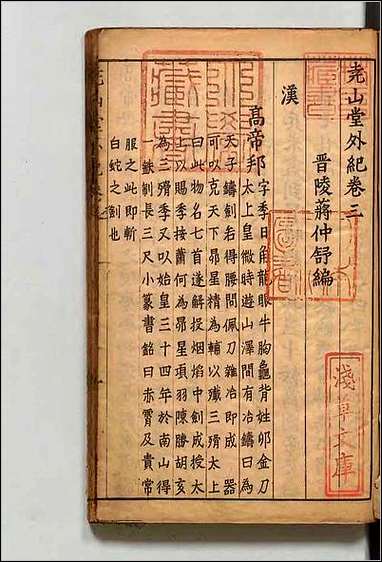 堯山堂外紀卷三
晋陵蔣仲舒編
漢
高帝邦
字季日角龍眼牛胸龜背姓卯金刀
太上皇微時遊山澤間有冶鑄曰為
天子鑄劍若得腰間佩刀雜冶即成器
可以克天下昴星精為輔以殲三猾太上
曰此物名七首遂解投爐焰中劍成授太
上以賜季按蕭何為昴星項羽陳勝胡亥
為三猾季又以始皇三十四年於南山得
一鉄劍長三尺小篆書銘曰赤霄及貴常
服之此即斬
白蛇之劍也
淺草文庫